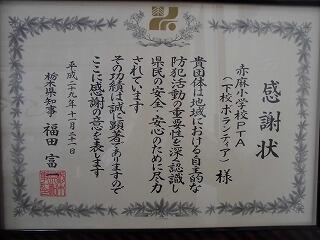 感謝状
赤麻小学校PTA
（下校ボランティア）様
貴団体は地域における自主的な
防犯活動の重要性を深く認識し
県民の安全・安心のために尽力
されています
その功績は誠に顕著でありますので
ここに感謝の意を表します
平成二十九年十一月二十一日
栃木県知事 福田富一